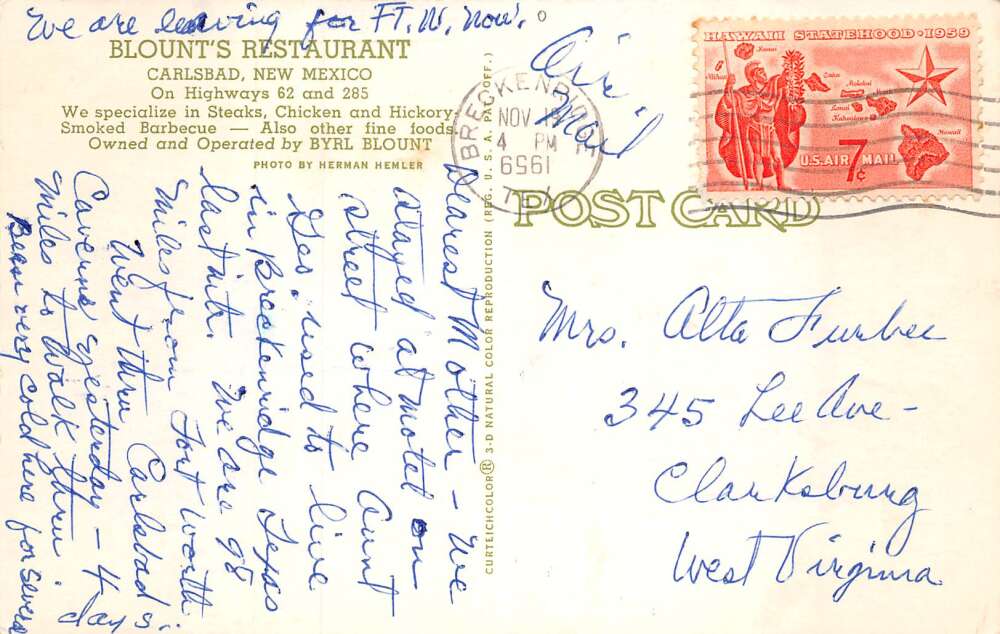 We are leaving for FT. W. now.
BLOUNT'S RESTAURANT
CARLSBAD, NEW MEXICO
On Highways 62 and 285
We specialize in Steaks, Chicken and Hickory
Smoked Barbecue — Also other fine foods
Owned and Operated by BYRL BLOUNT
PHOTO BY HERMAN HEMLER
Dearest Mother – We
stayed at motel on
street where Aunt
Geo. used to live
in Breckenridge Texas
last nite. We are 98
miles from Fort Worth.
Went thru Carlsbad
Caverns yesterday – 4
miles to walk thru.
Been very cold here for several
days
CURTEICHCOLOR® 3-D NATURAL COLOR REPRODUCTION (REG. U. S. A. PAT. OFF.)
Air
Mail
NOV
4 PM
1959
HAWAII STATEHOOD · 1959
Kauai
Oahu
Molokai
Maui
Lanai
Kahoolawe
Hawaii
U.S. AIR MAIL
7¢
POST CARD
Mrs. Alta Furbee
345 Lee Ave –
Clarksburg
West Virginia